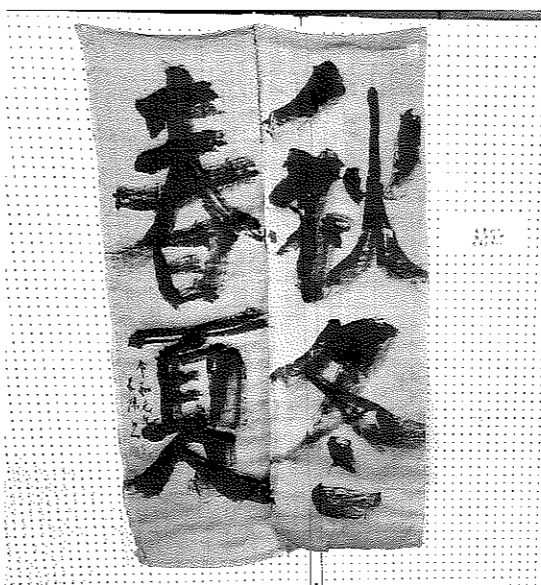 秋冬
春夏